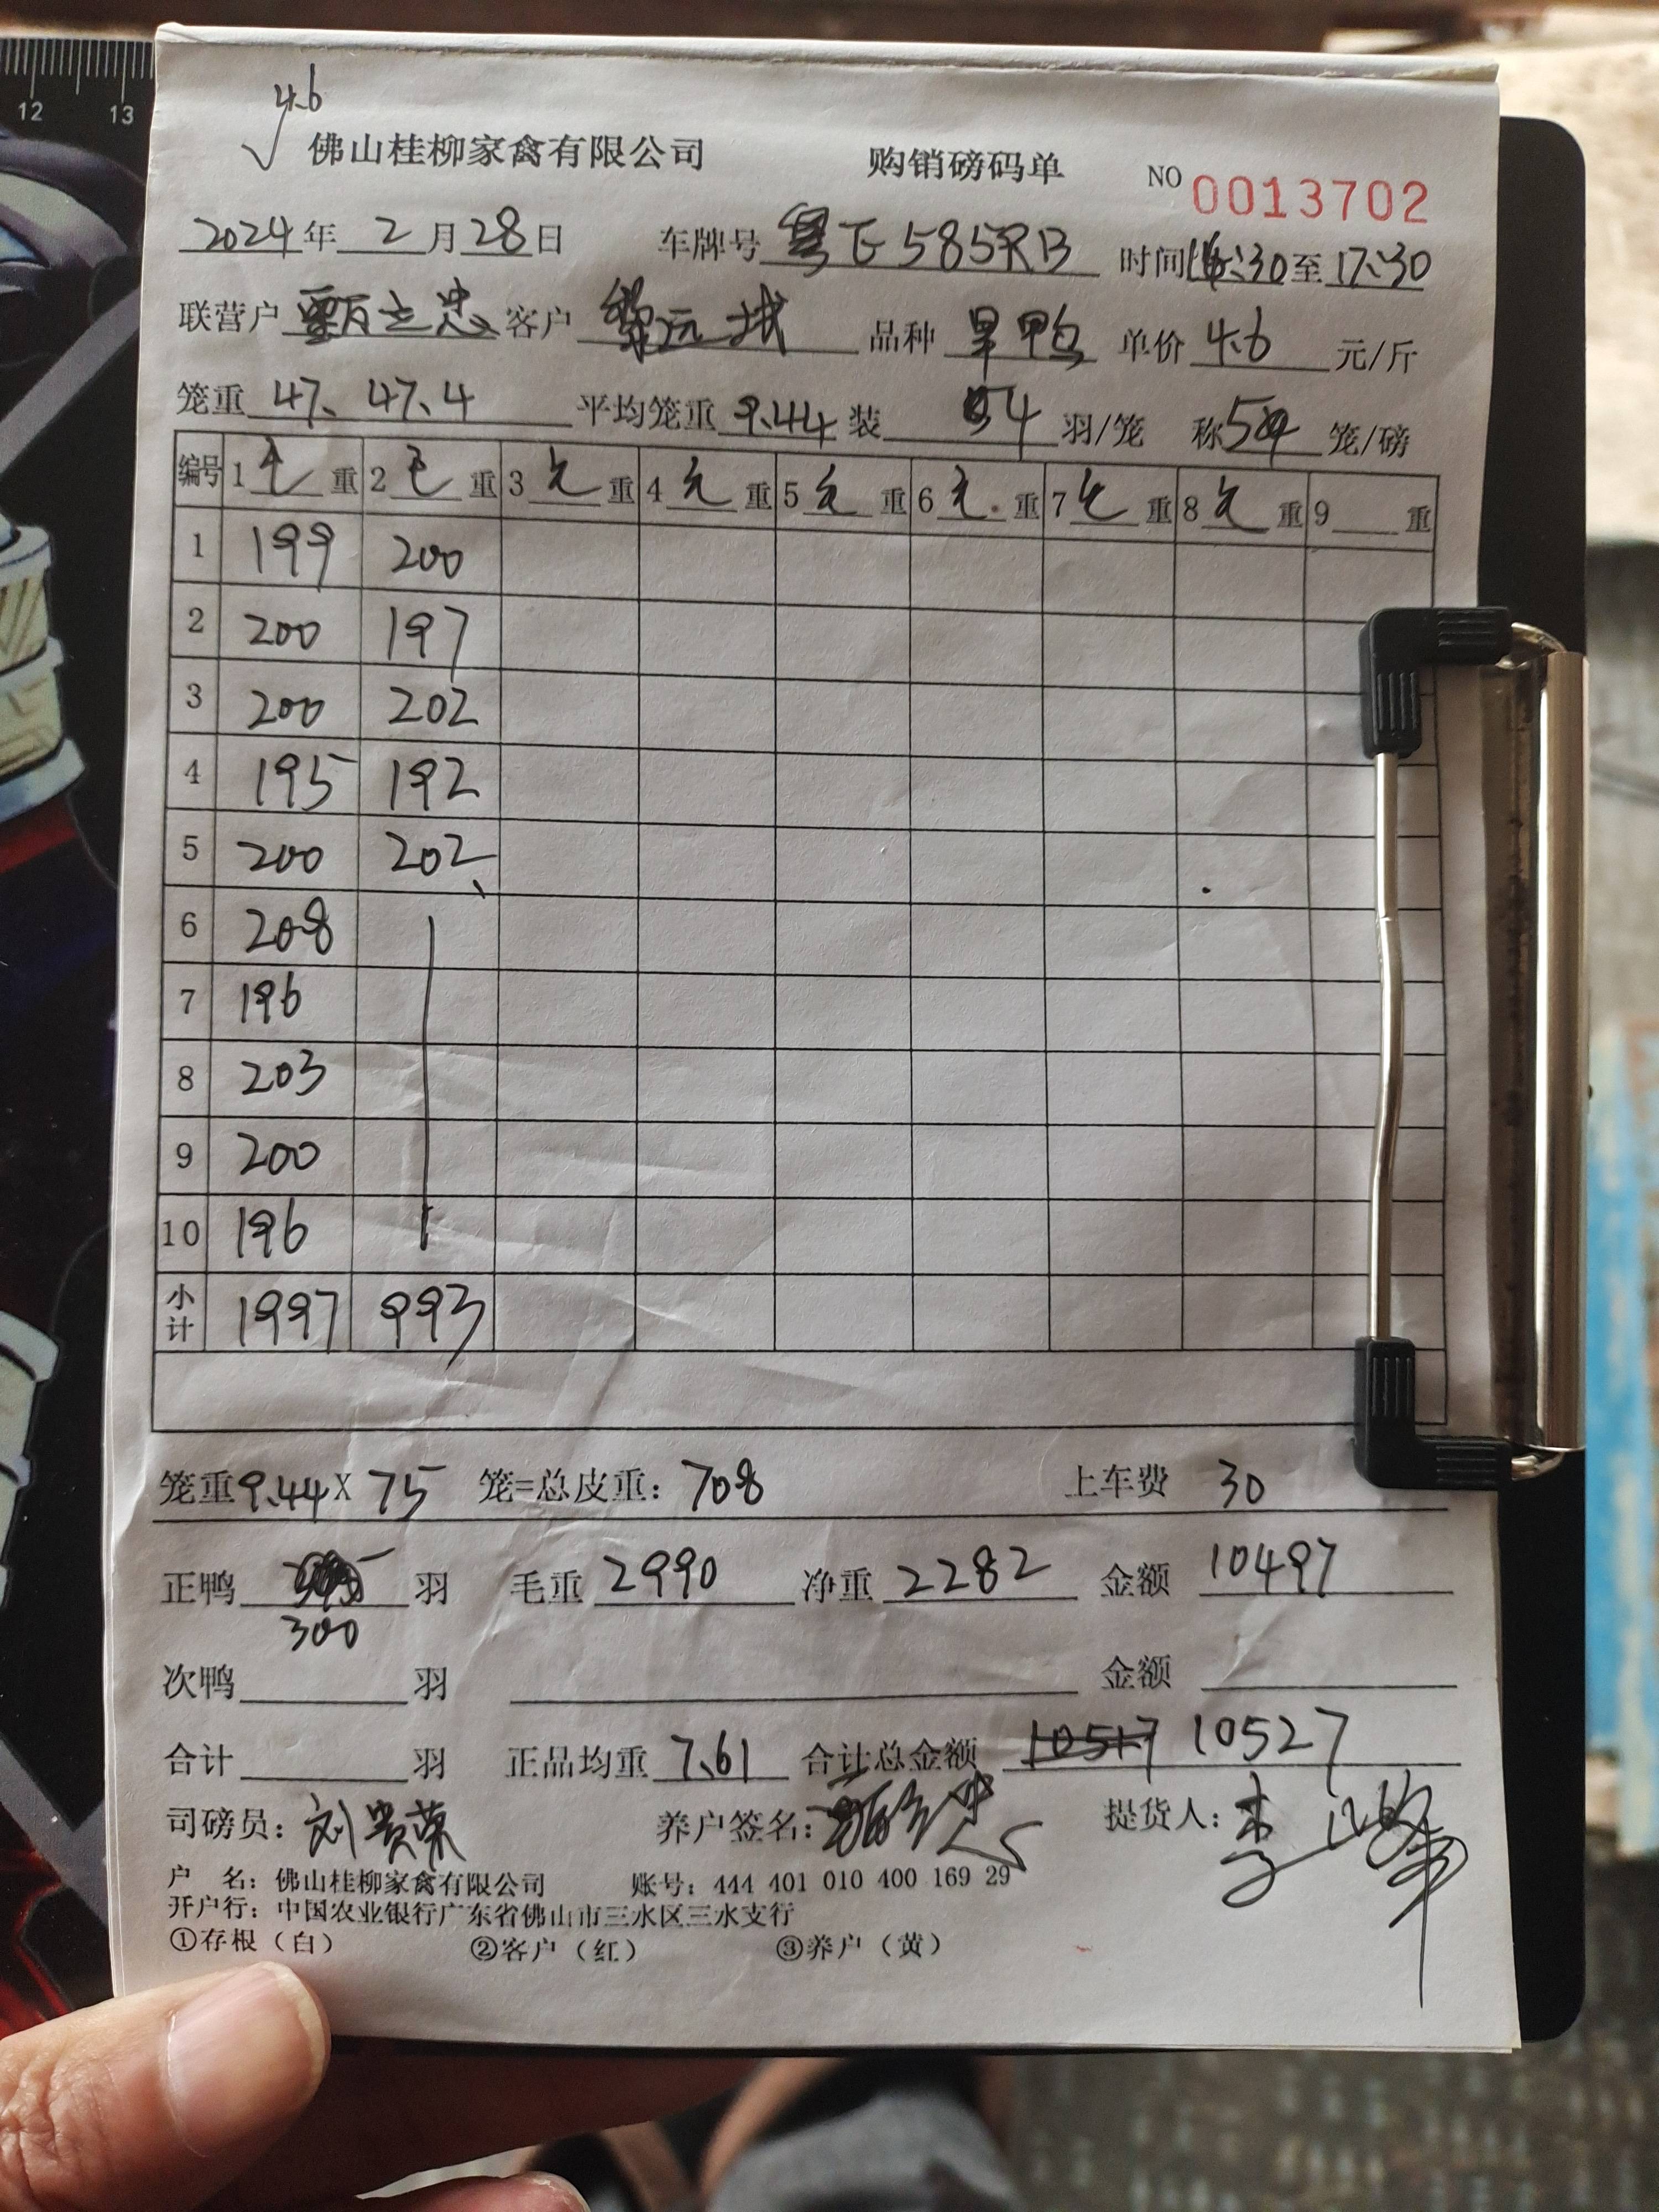 12 13
4.6
佛山桂柳家禽有限公司 购销磅码单 NO 0013702
2024年 2月28日 车牌号 粤E585RB 时间 16:30至17:30
联营户 客户 品种 旱鸭 单价 4.6 元/斤
笼重 47、47.4 平均笼重 9.44 装 4 羽/笼 称 5 笼/磅
编号 1 毛 重 2 毛 重 3 毛 重 4 毛 重 5 毛 重 6 毛 重 7 毛 重 8 毛 重 9 重
1 199 200
2 200 197
3 200 202
4 195 192
5 200 202
6 208
7 196
8 203
9 200
10 196
小计 1997 993
笼重 9.44 X 75 笼=总皮重: 708 上车费 30
正鸭 300 羽 毛重 2990 净重 2282 金额 10497
次鸭 羽 金额
合计 羽 正品均重 7.61 合计总金额 10517 10527
司磅员: 刘贵荣 养户签名: 提货人:
户 名: 佛山桂柳家禽有限公司 账号: 444 401 010 400 169 29
开户行: 中国农业银行广东省佛山市三水区三水支行
①存根（白） ②客户（红） ③养户（黄）